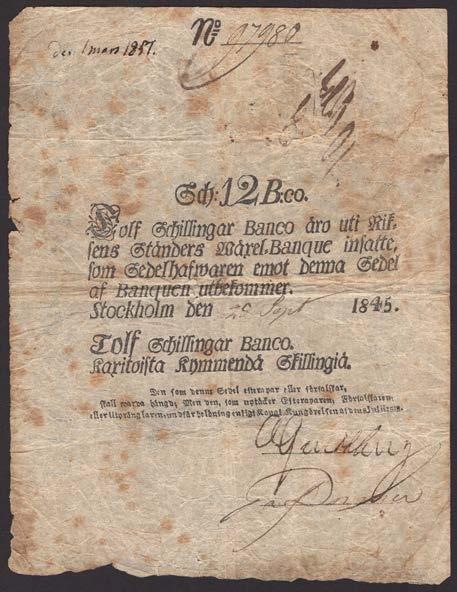 den 1 mars 1851.
No 97980
Sch: 12, B:co.
Tolf Schillingar Banco äro uti Rik-
sens Ständers Wäxel-Banque insatte,
som Sedelhafwaren emot denna Sedel
af Banquen utbekommer.
Stockholm den 29 Sept 1845.
Tolf Schillingar Banco.
Kaxitoista Kymmendä Skillingiä.
Den som denne Sedel efterapar eller förfalskar,
skall warda hängd; Men den, som uptäcker Efteraparen, Förfalskaren